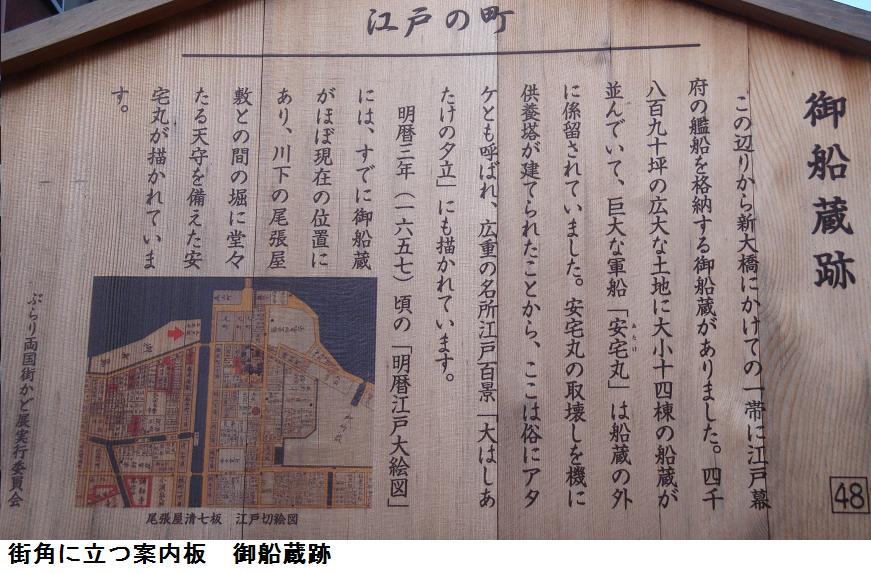 江戸の町
御船蔵跡
この辺りから新大橋にかけての一帯に江戸幕
府の艦船を格納する御船蔵がありました。四千
八百九十坪の広大な土地に大小十四棟の船蔵が
並んでいて、巨大な軍船「安宅丸」は船蔵の外
あたけ
に係留されていました。安宅丸の取壊しを機に
供養塔が建てられたことから、ここは俗にアタ
ケとも呼ばれ、広重の名所江戸百景「大はしあ
たけの夕立」にも描かれています。
明暦三年(一六五七)頃の「明暦江戸大絵図」
には、すでに御船蔵
がほぼ現在の位置に
あり、川下の尾張屋
敷との間の堀に堂々
たる天守を備えた安
宅丸が描かれていま
す。
尾張屋清七板 江戸切絵図
ぶらり両国街かど展実行委員会
48
街角に立つ案内板 御船蔵跡